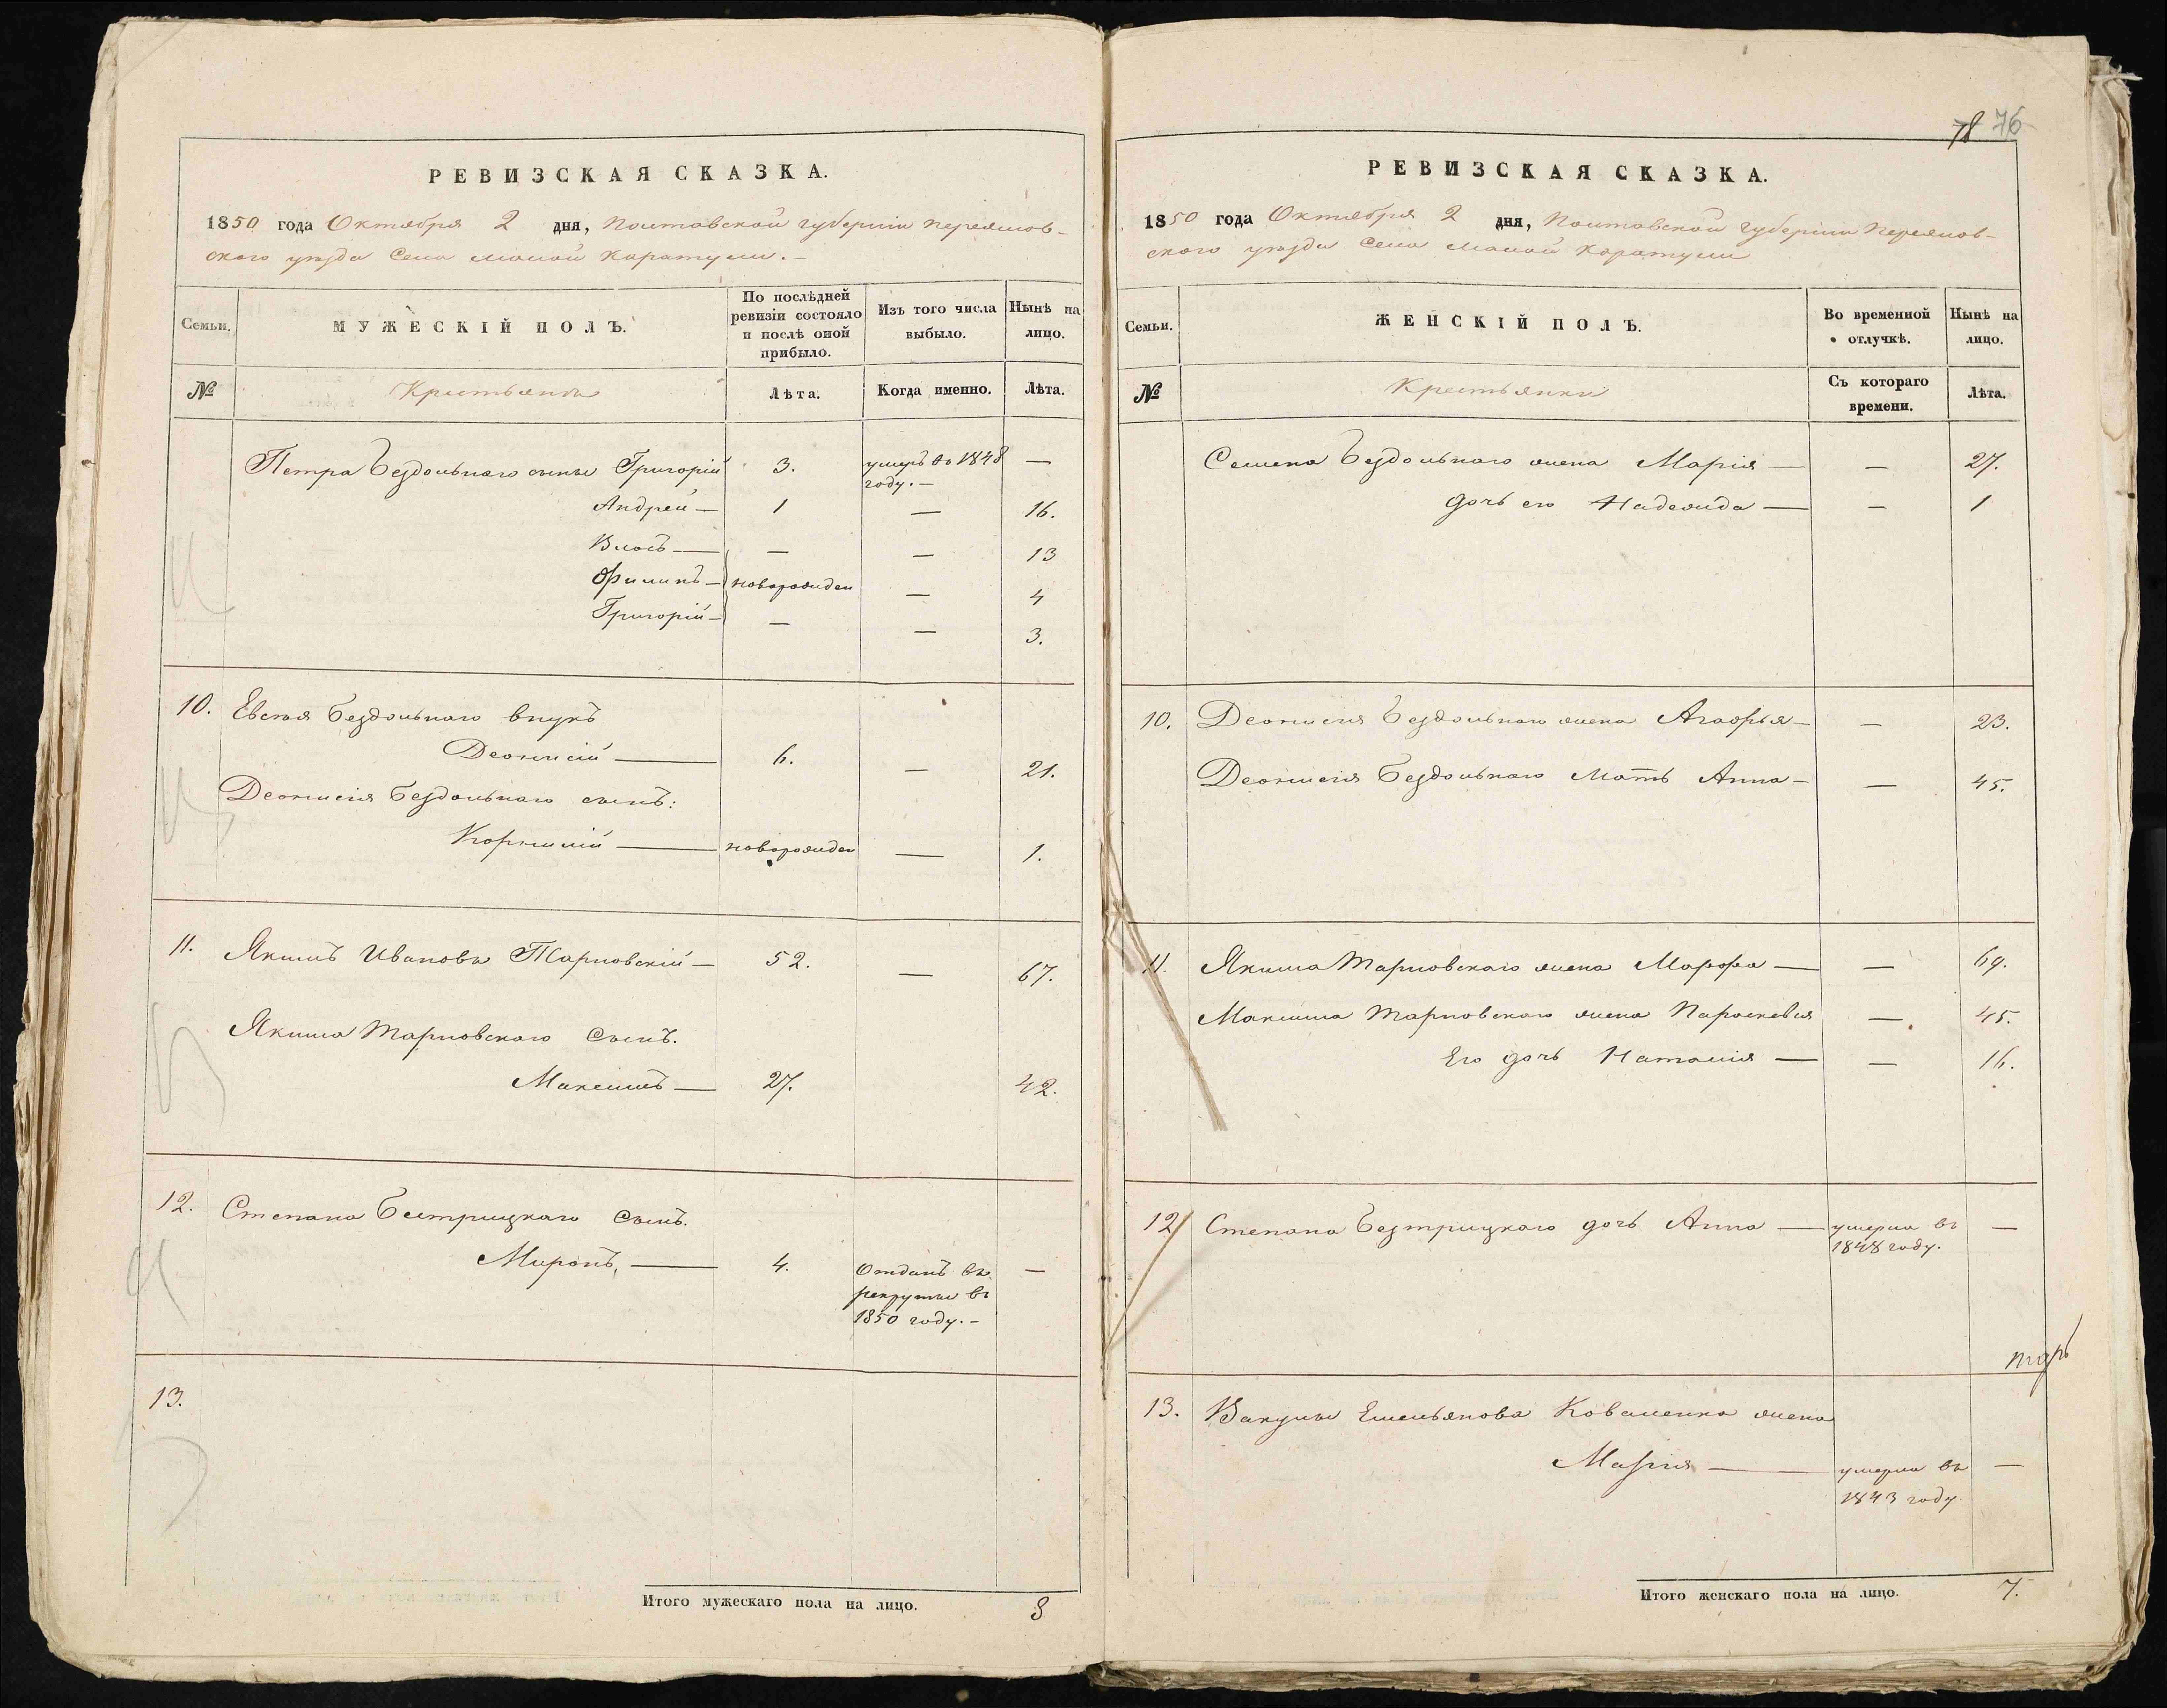 РЕВИЗСКАЯ СКАЗКА.
1850 года Октября 2 дня, Полтавской губернии Переяслов-
ского уезда Села Малой Каратули.-
Семьи. МУЖЕСКІЙ ПОЛЪ. По послѣдней ревизіи состояло и послѣ оной прибыло. Изъ того числа выбыло. Нынѣ на лицо.
№ Крестьянъ Лѣта. Когда именно. Лѣта.
Петра Бездольнаго сыны Григорій 3. умеръ въ 1848 —
году.—
Андрей — 1 — 16.
Власъ — — — 13
Филипъ — новорожден — 4
Григорій — — — 3.
10. Евстафія Бездольнаго внукъ
Деонисій — 6. — 21.
Деонисія Бездольнаго сынъ:
Корнилій — новорожден — 1.
11. Якимъ Ивановъ Тарновскій — 52. — 67.
Якима Тарновскаго Сынъ.
Максимъ — 27. 42.
12. Степана Бестрицкаго Сынъ.
Миронъ, — 4. Отданъ въ —
рекруты въ
1850 году.—
13.
Итого мужескаго пола на лицо. 8
78 76
РЕВИЗСКАЯ СКАЗКА.
1850 года Октября 2 дня, Полтавской губерніи Переяслов-
ского уезда Села Малой Каратули
Семьи. ЖЕНСКІЙ ПОЛЪ. Во временной отлучкѣ. Нынѣ на лицо.
№ Крестьянки Съ котораго времени. Лѣта.
Семена Бездольнаго жена Марія — — 27.
дочь его Надежда — — 1
10. Деонисія Бездольнаго жена Агафья — — 23.
Деонисія Бездольнаго Мать Анна — — 45.
11. Якима Тарновскаго жена Марфа — — 69.
Максима Тарновскаго жена Параскевія — 45.
Его дочь Наталія — — 16.
12 Степана Безтрицкаго дочь Анна — умерла въ —
1848 году.
13. Вакулы Емельянова Коваленка жена
Марія — умерла въ —
1843 году.
Итого женскаго пола на лицо. 7.